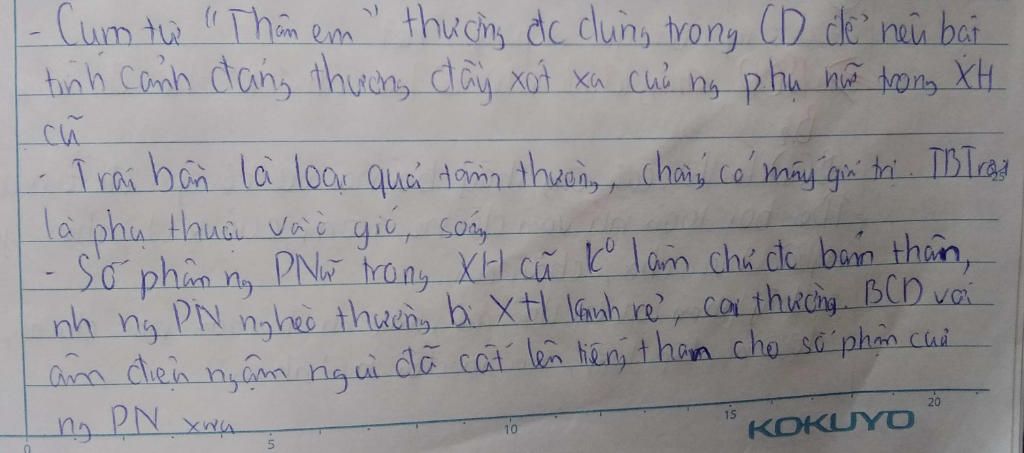 - Cụm từ "Thân em" thường đc dùng trong CD để nêu bật
tình cảnh đáng thương đầy xót xa của ng phụ nữ trong XH
cũ
- Trái bần là loại quả tầm thường, chẳng có mấy giá trị. TBTrôi
là phụ thuộc vào gió, sóng
- Số phận ng PNữ trong XH cũ k⁰ làm chủ đc bản thân,
nh ng PN nghèo thường bị XH khinh rẻ, coi thường. BCD với
âm điệu ngậm ngùi đã cất lên tiếng than cho số phận của
ng PN xưa
5 10 15 20
KOKUYO